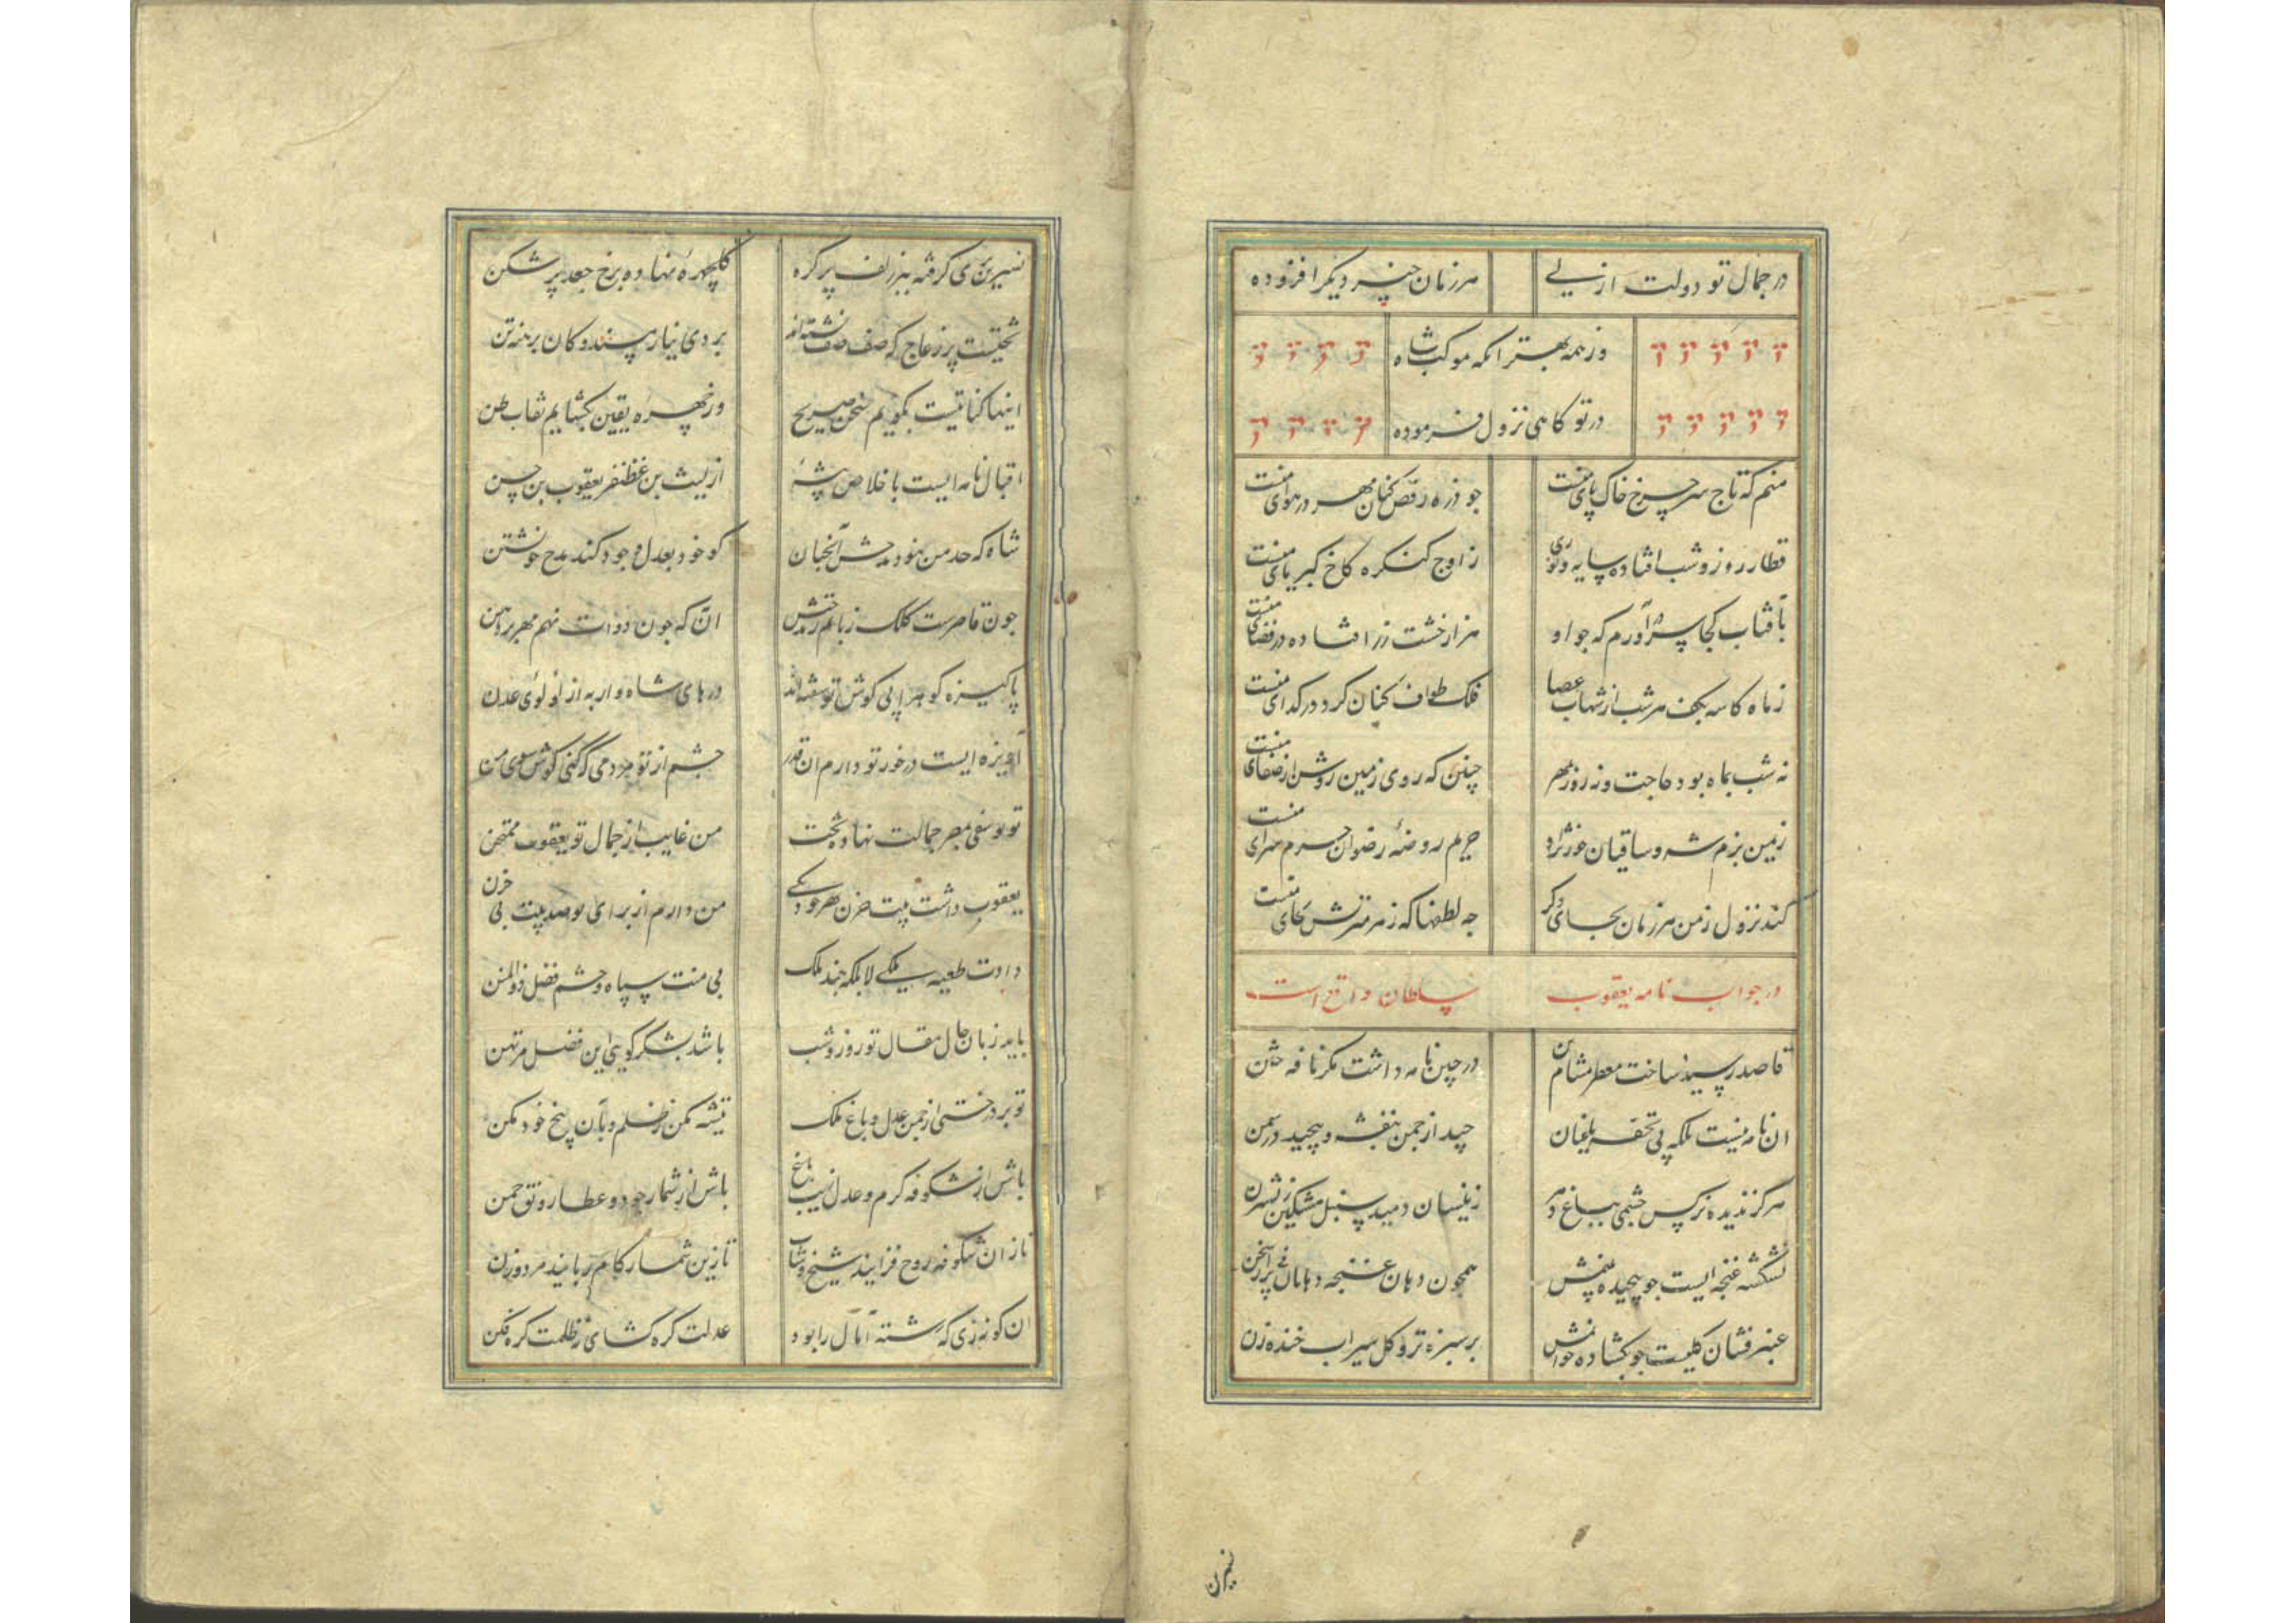 در جمال تو دولت ازلی هر زمان چیز دیکر افزوده
وز همه بهتر انکه موکب شاه
در تو کاهی نزول فرموده
منم که تاج سر چرخ خاک پای منست جو ذره رقص کنان مهر در هوای منست
قطار روز و شب افتاده سایه و نوری ز اوج کنکره کاخ کبریای منست
بآفتاب کجا سر درآورم که جو او هزار خشت زر افتاده در فضای منست
ز ماه کاسه بکف هر شب از شهاب عصا فلک طواف کنان کرد در کدای منست
نه شب بماه بود حاجت و نه روز بمهر چنین که روی زمین روشن از صفای منست
زمین بزم شه و ساقیان حورنژاد حریم روضهٔ رضوان حرم سرای منست
کند نزول ز من هر زمان بجای دکر جه لطفها که ز هر منزلش بجای منست
در جواب نامه یعقوب سلطان واقع است
قاصد رسید و ساخت معطر مشام من در چین نامه داشت مکر نافه ختن
ان نامه نیست بلکه پی تحفه باغبان چید از جمن بنفشه و پیچید در سمن
هرکز ندیده نرکس چشمی بباغ دهر زینسان دمید سنبل مشکین ز نسترن
نشکفته غنچه ایست جو پیچیده بینمش همچون دهان غنچه دهانان پر از سخن
عنبر فشان کلیست جو بکشاده خوانمش بر سبزه تر و کل سیراب خنده زن
نسرین بری کرفته ببر زلف پر کره کلچهرهٔ نهاده برخ جعد پر شکن
تختیست پر ز عاج که صف صف نشسته اند بر وی نیازمند هندوکان برهنه تن
اینها کنایتیست بکویم سخن صریح وز چهره یقین بکشایم نقاب ظن
اقبال نامه ایست باخلاص پیشهٔ از لیث بن غظنفر یعقوب بن حسن
شاه که حد من نبود مدحش آنجنان کو خود بعدل و جود کند مدح خویشتن
جون قاصرست کلک زبانم ز مدحتش ان که جون دوات نهم مهر بر دهن
پاکیزه کوهر از پی کوش تو سفته اند درهای شاهوار به از لولوی عدن
آویزه ایست در خور تو دارم ان قدر جشم از تو مردمی که کنی کوش سوی من
تو یوسفی بمصر جمالت نهاده تخت من غایب از جمال تو یعقوب ممتحن
یعقوب داشت بیت حزن بهر خود یکی من دارم از برای تو صد بیت پی حزن
دادت طعیه یکی لا بلکه جند ملک بی منت سپاه و حشم فضل ذوالمنن
باید زبان حال و مقال تو روز و شب باشد بشکر کویی این فضل مرتهن
تو بر درختی از جمن عدل و باغ ملک تیشه مکن ز ظلم و بآن بیخ خود مکن
باش از شکوفه کرم و عدل زیب باغ باش از شمار جود و عطا رونق جمن
تا زان شکوفه روح فزایند شیخ و شاب تا زین شمار کام ربایند مرد و زن
ان کونه زی که رشته آمال را بود عدلت کره کشای و ز ظلمت کره فکن
نسرین